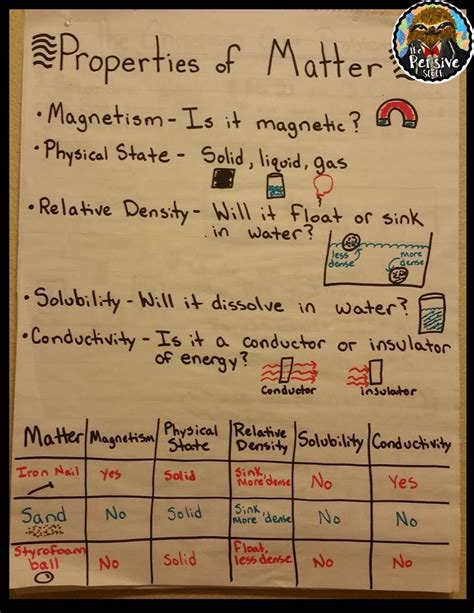 the
Pensive
Sloth
Properties of Matter
• Magnetism - Is it magnetic?
• Physical State - Solid, liquid, gas
• Relative Density - Will it float or sink
in water?
less dense
more dense
• Solubility - Will it dissolve in water?
• Conductivity - Is it a conductor or insulator
of energy?
Conductor
insulator
Matter Magnetism Physical State Relative Density Solubility Conductivity
Iron Nail Yes Solid Sink, More dense No Yes
Sand No Solid Sink, More dense No No
Styrofoam ball No Solid Float, less dense No No